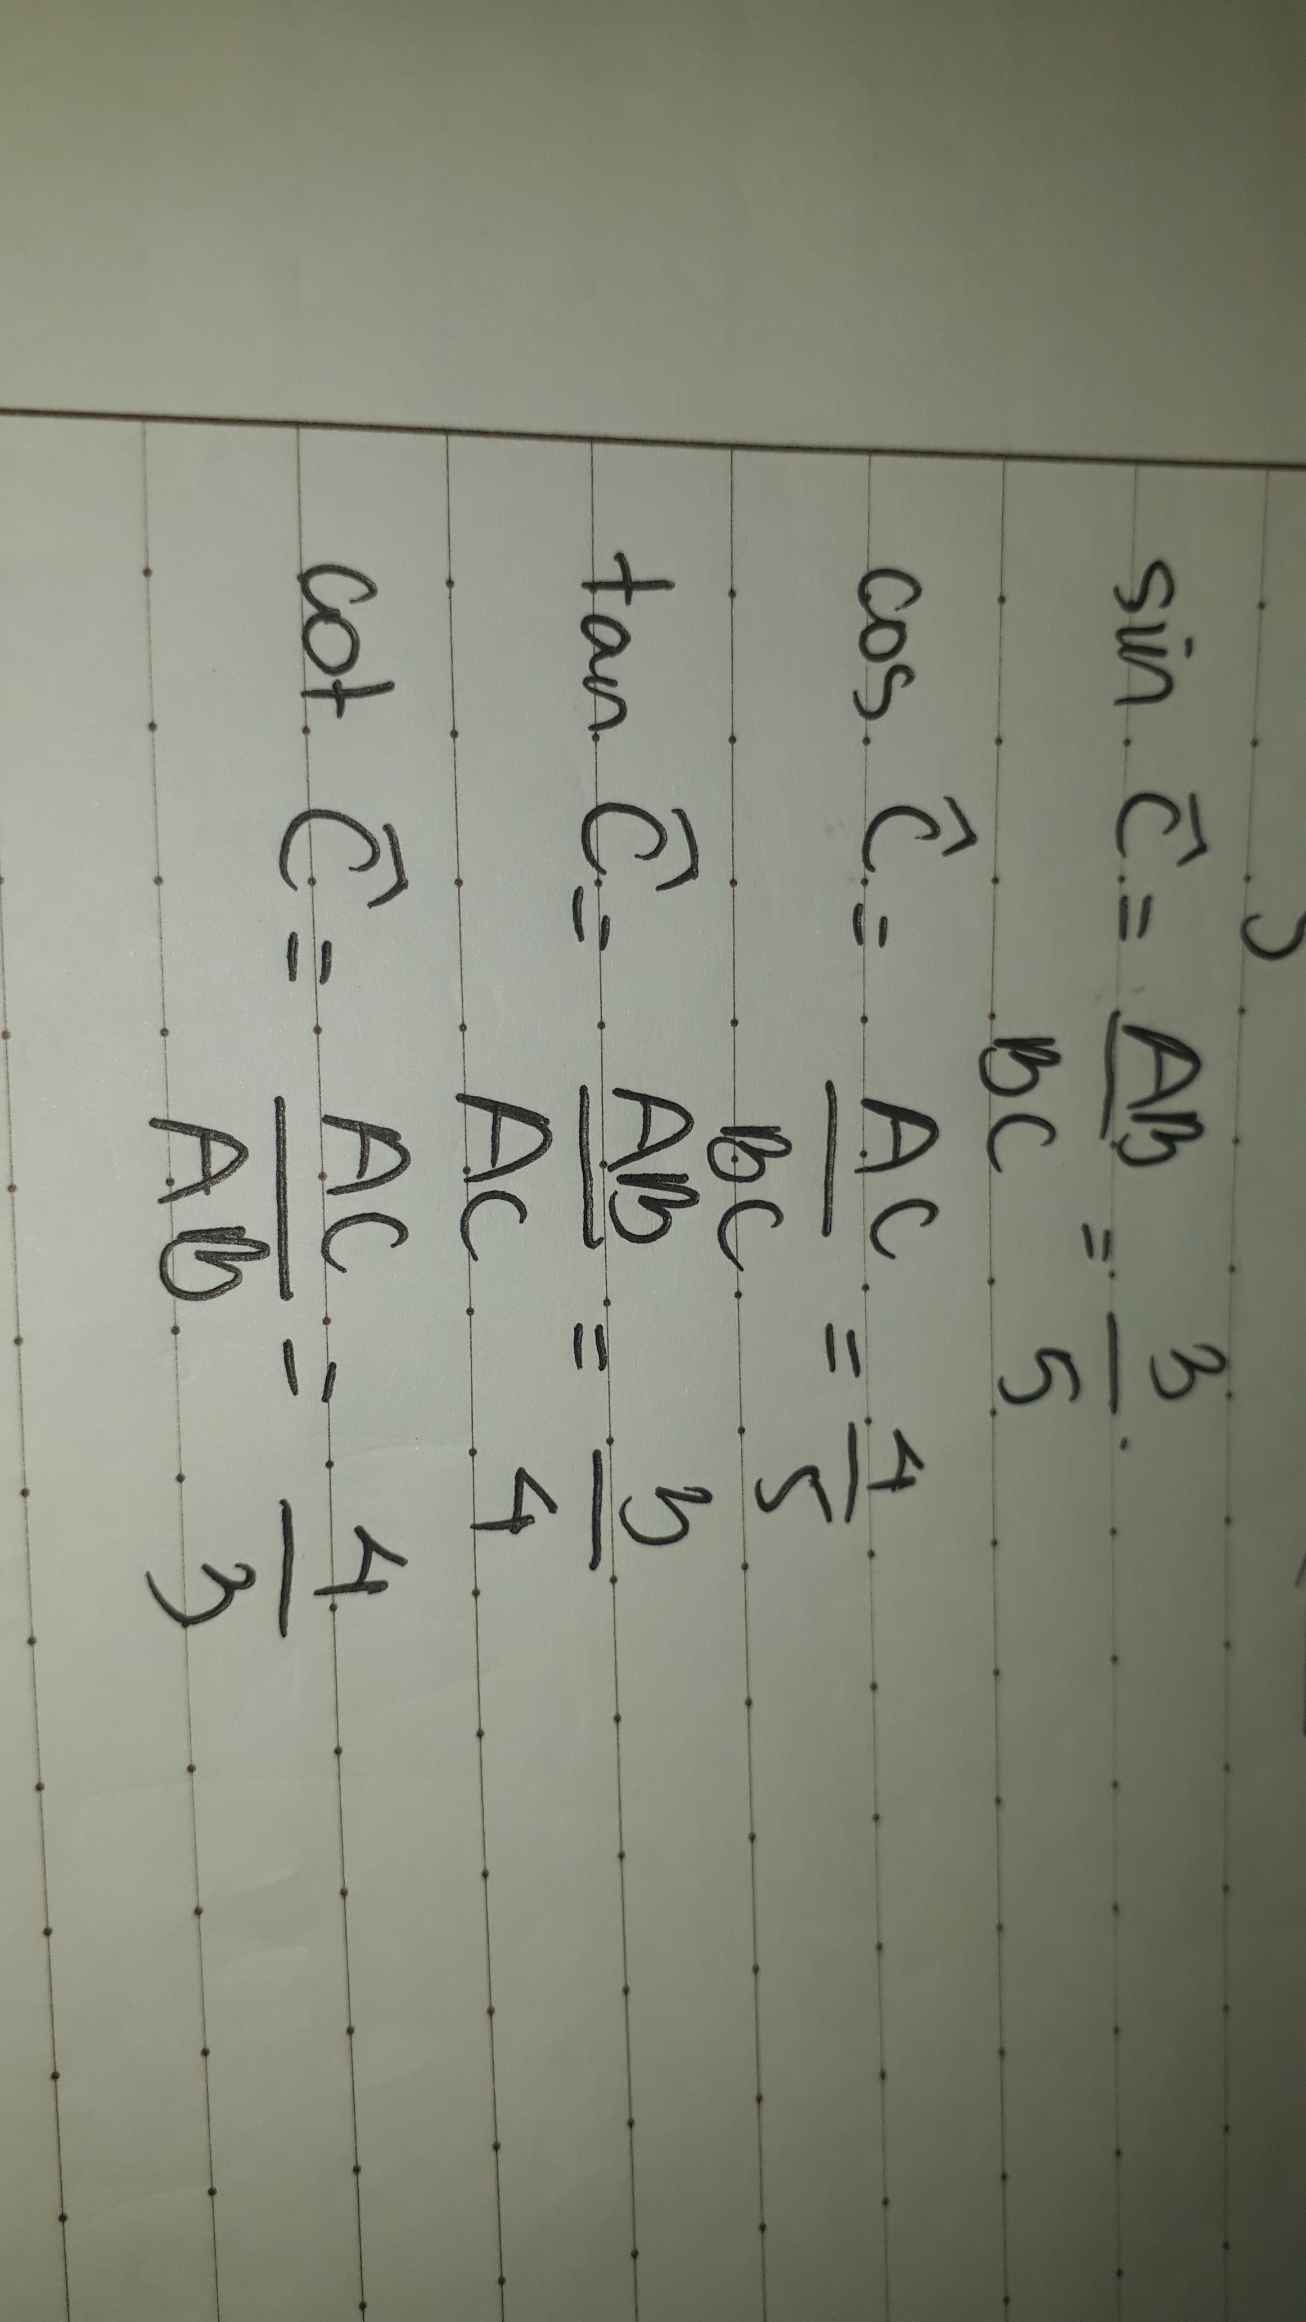 sin Ĉ = AB/BC = 3/5.
cos Ĉ = AC/BC = 4/5
tan Ĉ = AB/AC = 3/4
cot Ĉ = AC/AB = 4/3